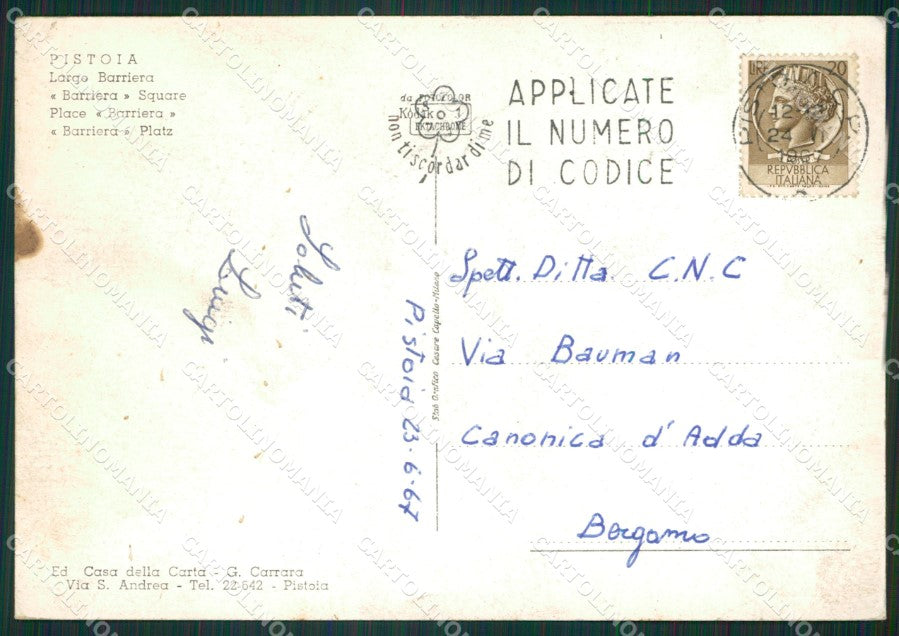 PISTOIA
Largo Barriera
« Barriera » Square
Place « Barriera »
« Barriera » Platz
da FOTOCOLOR
Kodak
EKTACHROME
nontiscordardime
APPLICATE
IL NUMERO
DI CODICE
LIRE 20
REPVBBLICA
ITALIANA
Saluti
Luigi
Pistoia 23-6-67
Stab Grafico Cesare Capello-Milano
Spett. Ditta C.N.C
Via Bauman
Canonica d'Adda
Bergamo
Ed Casa della Carta - G. Carrara
Via S. Andrea - Tel. 22-642 - Pistoia
CARTOLINOMANIA